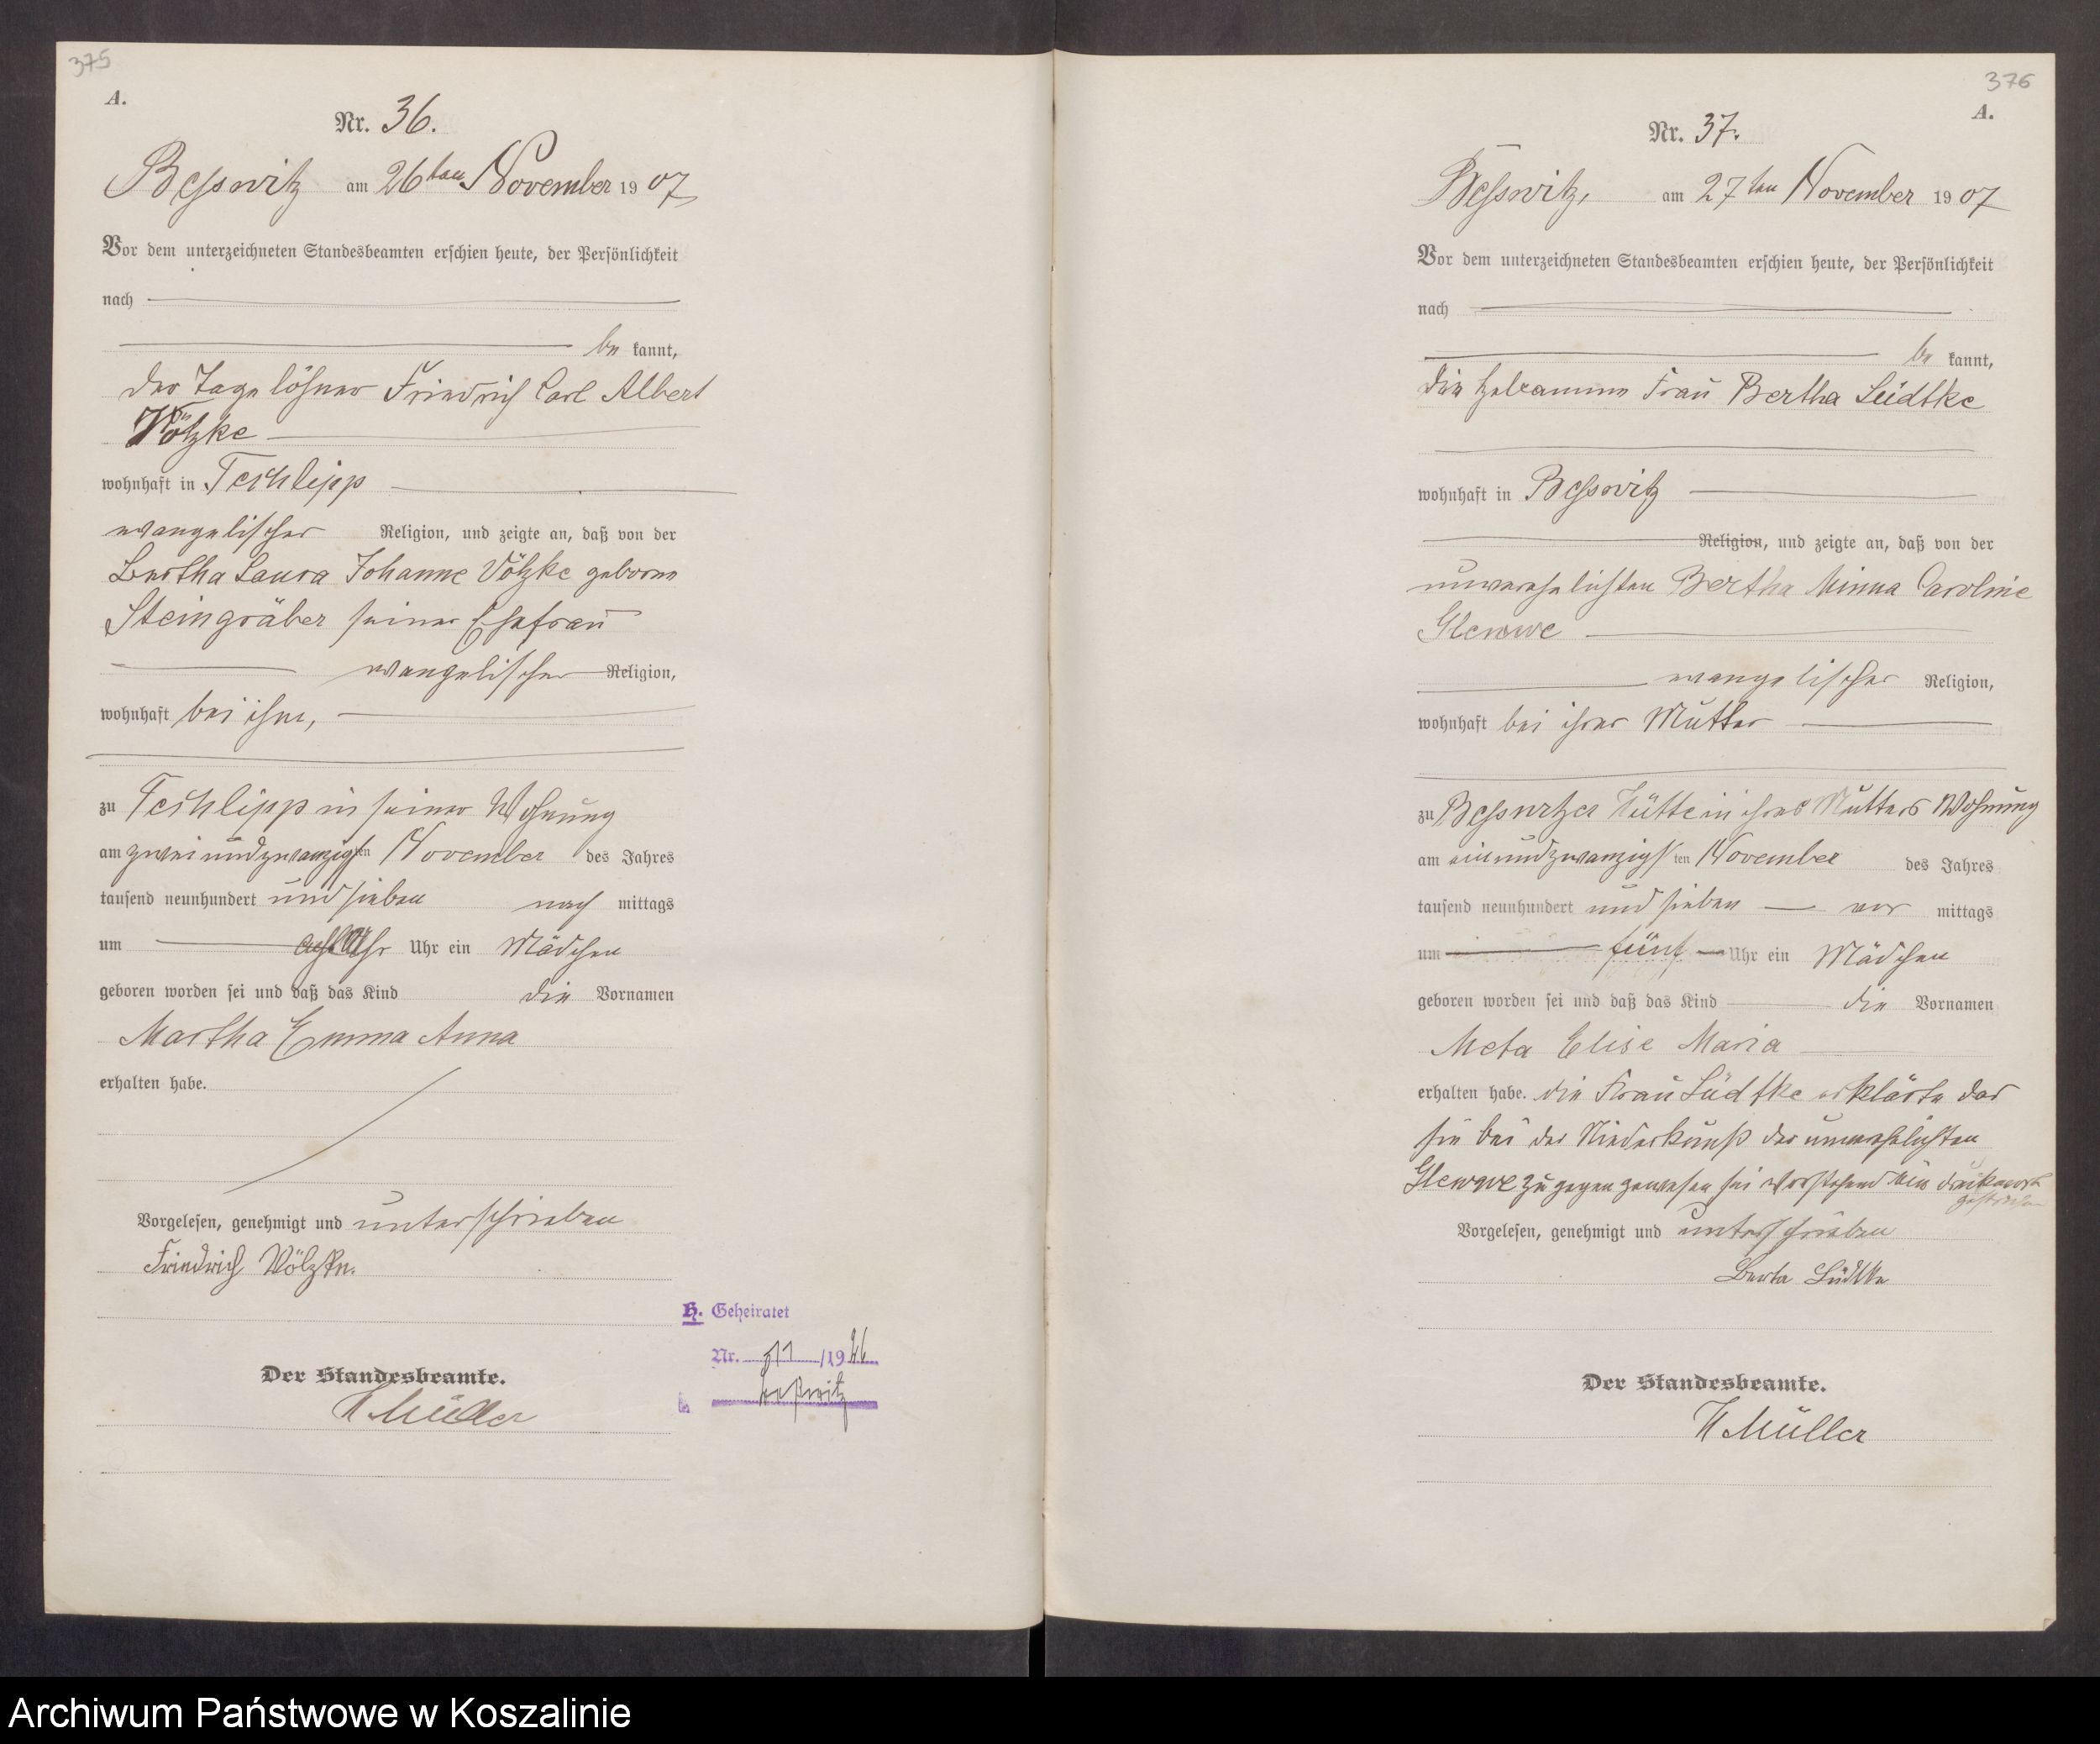 375
A.
Nr. 36.
Besswitz am 26ten November 1907
Vor dem unterzeichneten Standesbeamten erschien heute, der Persönlichkeit
nach
be kannt,
der Tagelöhner Friedrich Carl Albert
Völzke
wohnhaft in Techlipp
evangelischer Religion, und zeigte an, daß von der
Bertha Laura Johanne Völzke geborene
Steingräber seiner Ehefrau
evangelischer Religion,
wohnhaft bei ihm,
zu Techlipp in seiner Wohnung
am zweiundzwanzigsten November des Jahres
tausend neunhundert und sieben nach mittags
um acht Uhr Uhr ein Mädchen
geboren worden sei und daß das Kind die Vornamen
Martha Emma Anna
erhalten habe.
Vorgelesen, genehmigt und unterschrieben
Friedrich Völzke.
H. Geheiratet
Nr. /1926
Beßwitz
Der Standesbeamte.
Müller
376
A.
Nr. 37.
Besswitz, am 27ten November 1907
Vor dem unterzeichneten Standesbeamten erschien heute, der Persönlichkeit
nach
be kannt,
die Hebamme Frau Bertha Lüdtke
wohnhaft in Besswitz
Religion, und zeigte an, daß von der
unverehelichten Bertha Minna Caroline
Glewwe
evangelischer Religion,
wohnhaft bei ihrer Mutter
zu Besswitzer Hütte in ihres Mutters Wohnung
am einundzwanzigsten November des Jahres
tausend neunhundert und sieben vor mittags
um fünf Uhr ein Mädchen
geboren worden sei und daß das Kind die Vornamen
Meta Elise Maria
erhalten habe. die Frau Lüdtke erklärte das
sie bei der Niederkunft der unverehelichten
Glewwe zugegen gewesen sei vorstehend ein druckwort
gestrichen
Vorgelesen, genehmigt und unterschrieben
Berta Lüdtke
Der Standesbeamte.
Müller
Archiwum Państwowe w Koszalinie